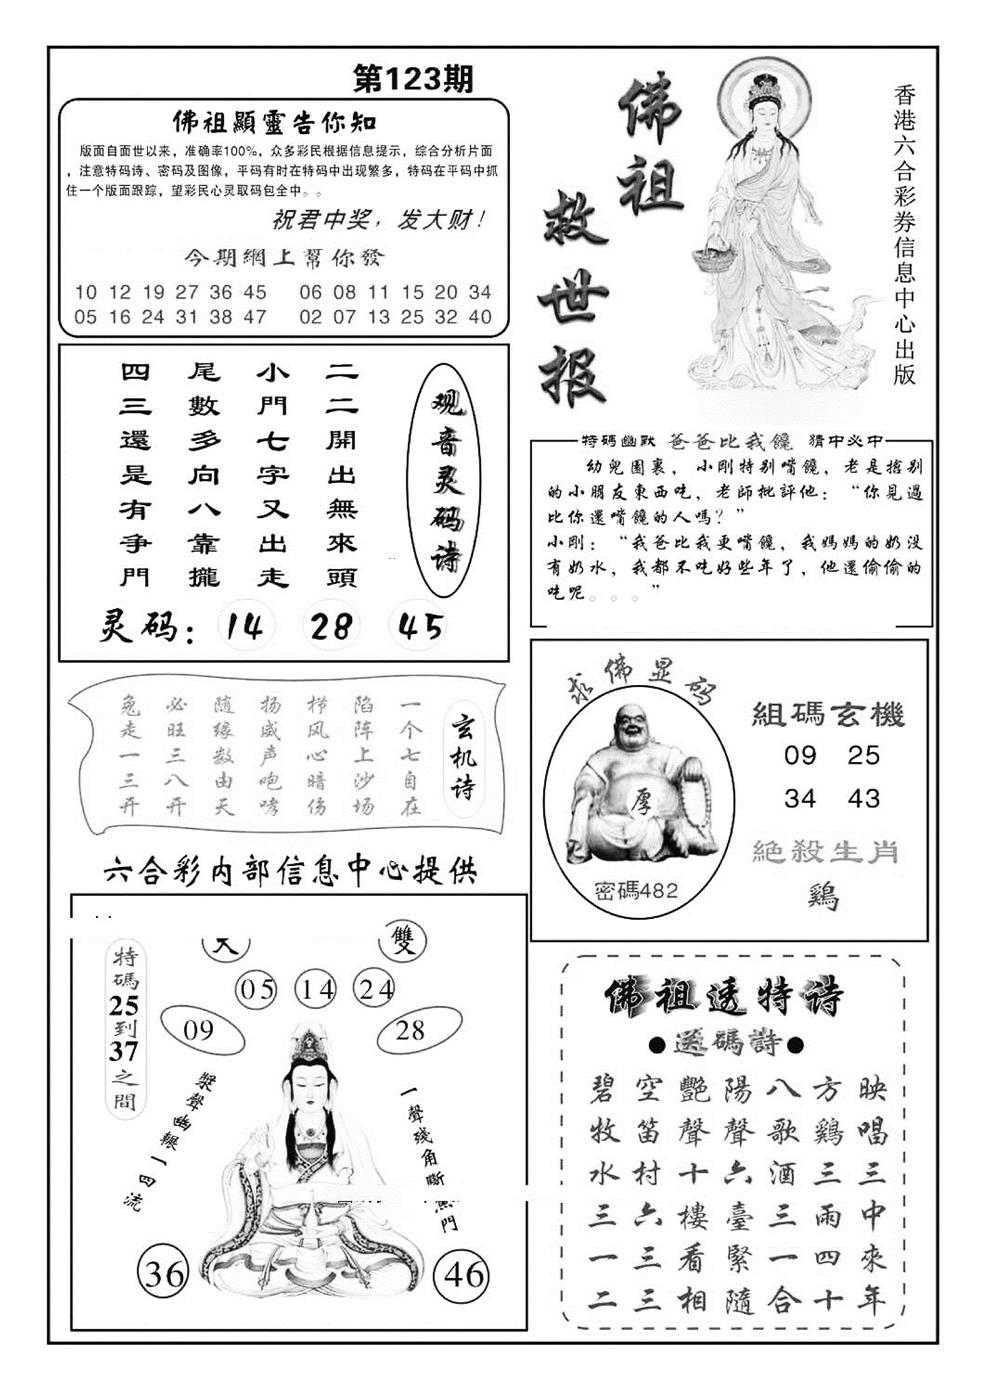 第123期
佛祖顯靈告你知
版面自面世以来，准确率100%，众多彩民根据信息提示，综合分析片面
，注意特码诗、密码及图像，平码有时在特码中出现繁多，特码在平码中抓
住一个版面跟踪，望彩民心灵取码包全中。。
祝君中奖，发大财！
今期網上幫你發
10 12 19 27 36 45 06 08 11 15 20 34
05 16 24 31 38 47 02 07 13 25 32 40
佛祖
救世报
香港六合彩券信息中心出版
观音灵码诗
二二開出無來頭
小門七字又出走
尾數多向八靠攏
四三還是有爭門
灵码：14 28 45
特碼幽默 爸爸比我饞 猜中必中
幼兒園裏，小剛特别嘴饞，老是搶别
的小朋友東西吃，老師批評他：“你見過
比你還嘴饞的人嗎？”
小剛：“我爸比我更嘴饞，我媽媽的奶没
有奶水，我都不吃好些年了，他還偷偷的
吃呢。。。”
玄机诗
一个七自在
陷阵上沙场
栉风心暗伤
扬威声咆哮
随缘数由天
必旺三八开
兔走一三开
求佛显码
厚
密碼482
組碼玄機
09 25
34 43
絕殺生肖
鷄
六合彩内部信息中心提供
大 雙
05 14 24
09 28
特碼25到37之間
槳聲幽輾一四流
36 46
佛祖透特诗
●送碼詩●
映唱三中來年
方鷄三兩四十
八歌酒三一合
陽聲六臺緊隨
艷聲十樓看相
空笛村六三三
碧牧水三一二